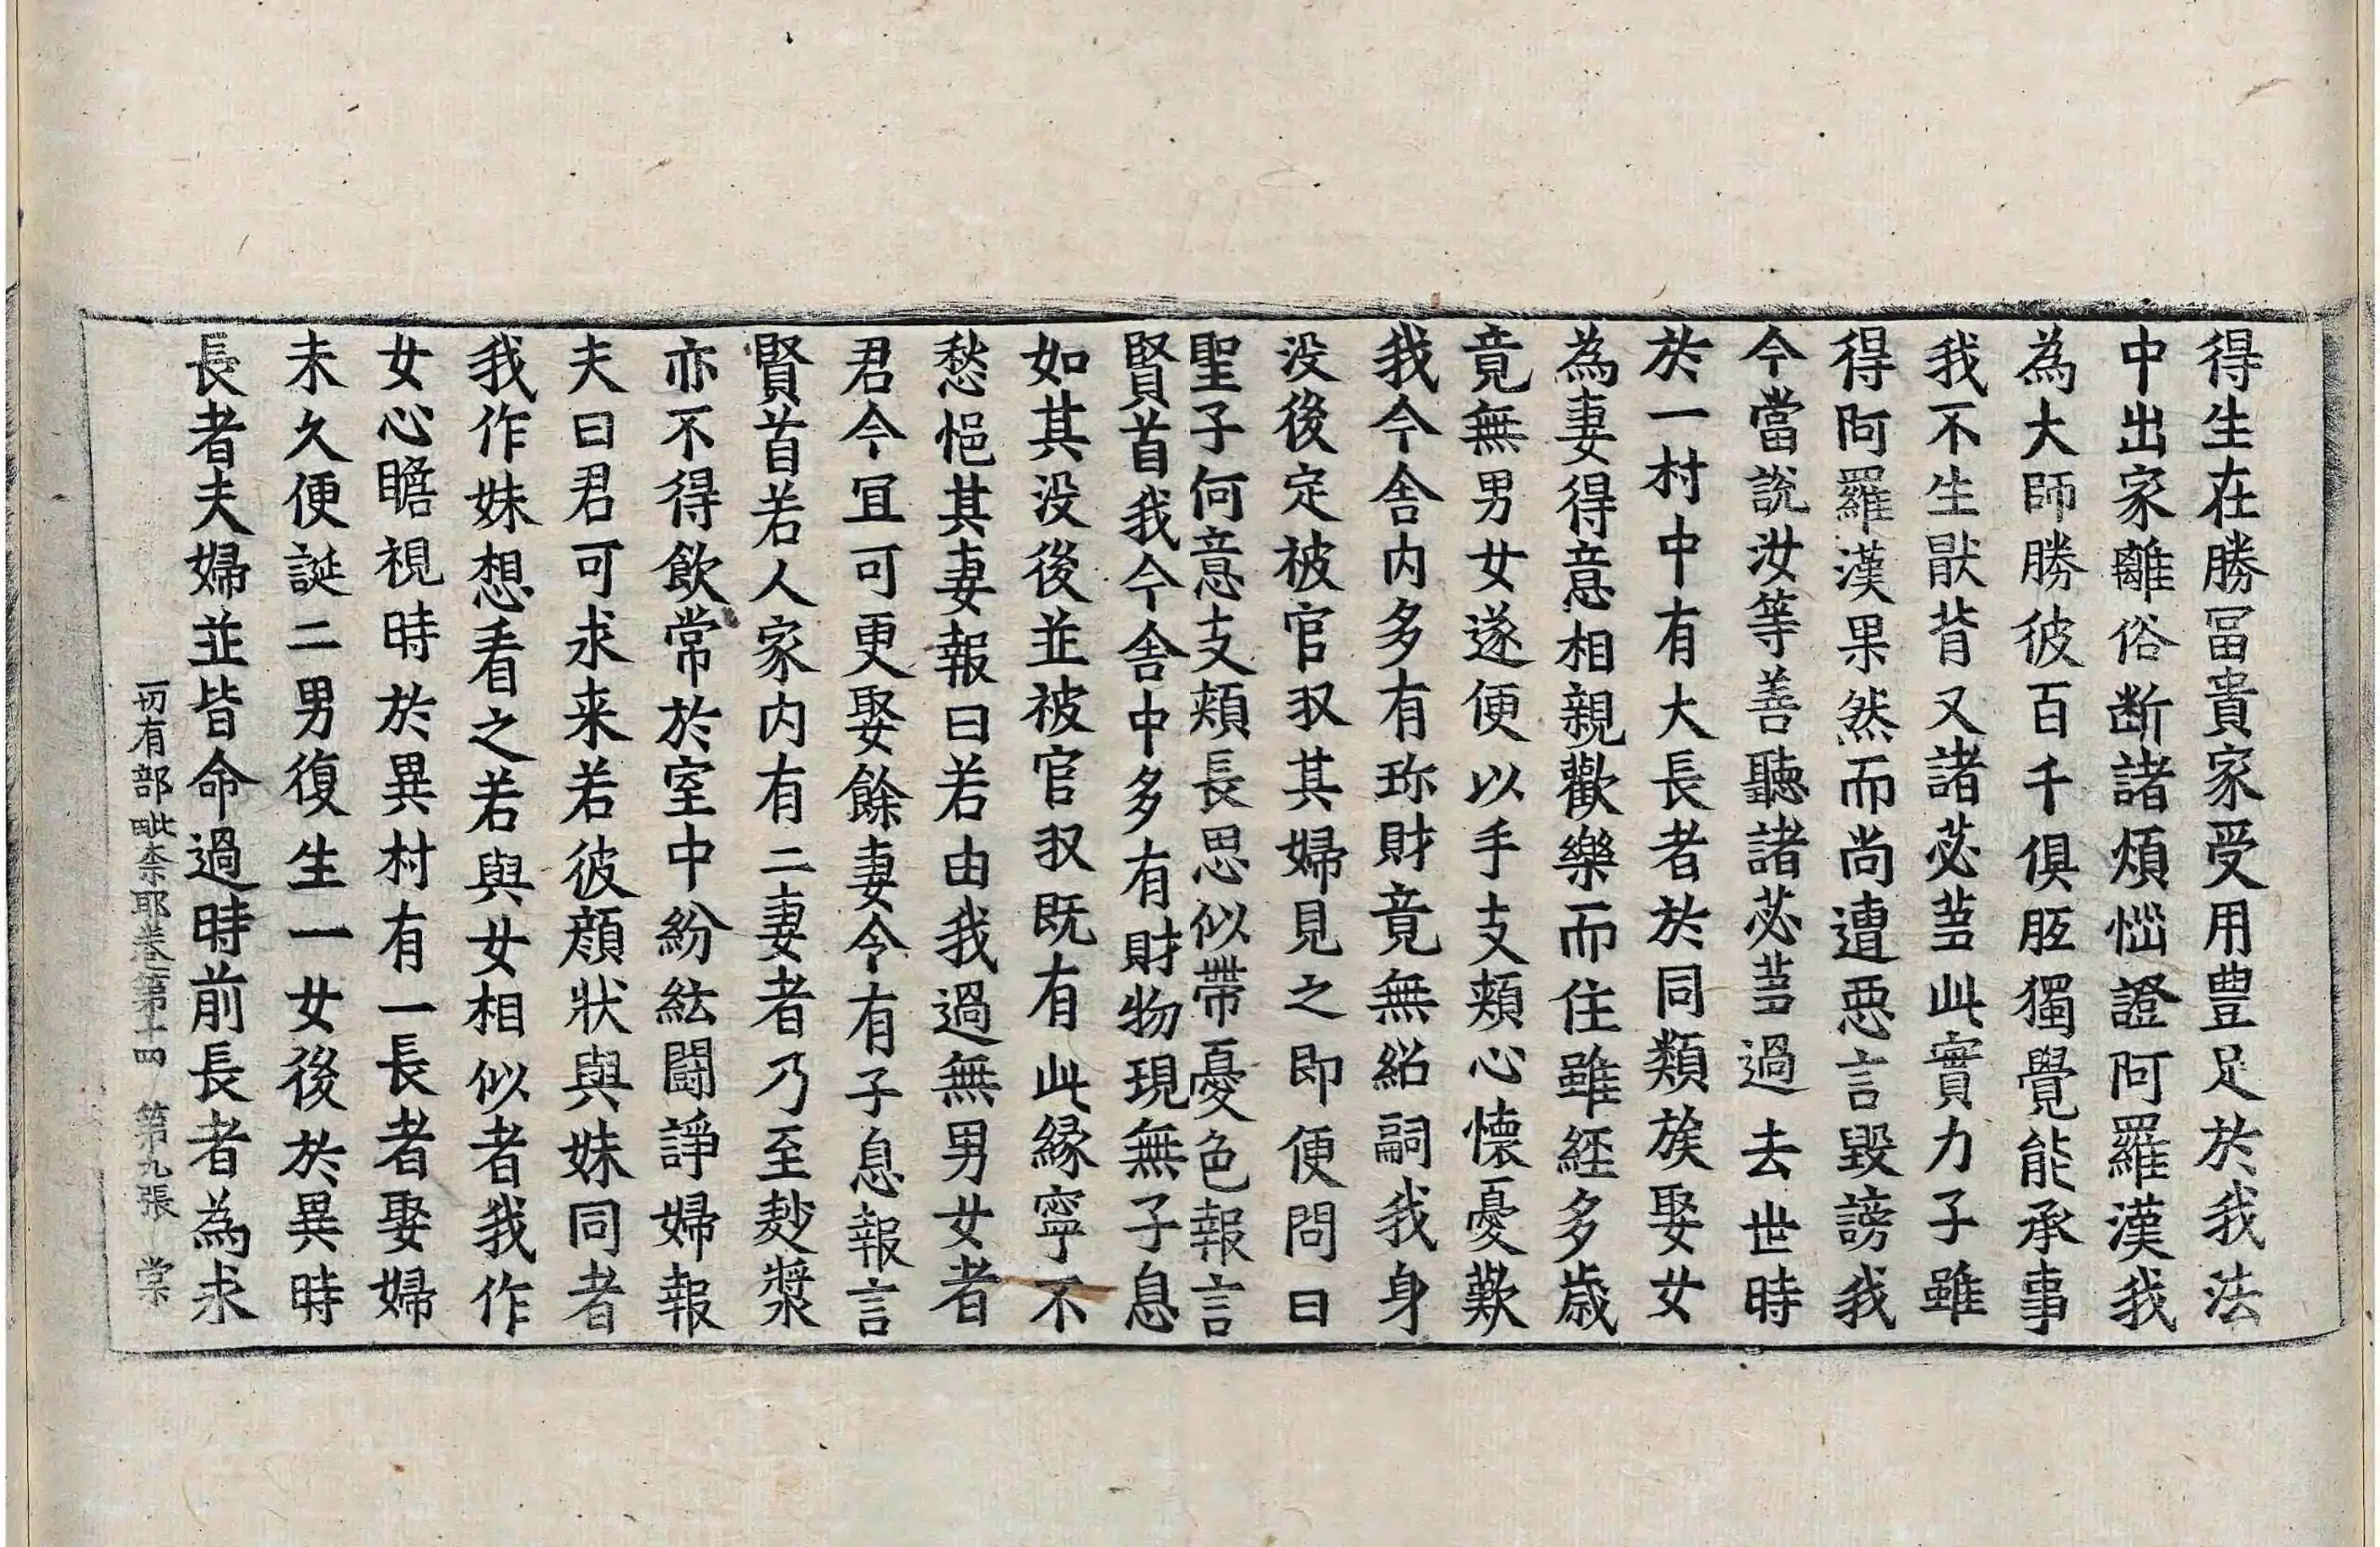 得生在勝冨貴家受用豊足於我法
中出家離俗断諸煩惱證阿羅漢我
為大師勝彼百千俱胝獨覺能承事
我不生猒背又諸苾芻此實力子雖
得阿羅漢果然而尚遭惡言毀謗我
今當說汝等善聽諸苾芻過去世時
於一村中有大長者於同類族娶女
為妻得意相親歡樂而住雖経多歳
竟無男女遂便以手支頰心懷憂歎
我今舍内多有珎財竟無紹嗣我身
没後定被官収其婦見之即便問曰
聖子何意支頰長思似帶憂色報言
賢首我今舍中多有財物現無子息
如其没後並被官収既有此縁寧不
愁悒其妻報曰若由我過無男女者
君今冝可更娶餘妻令有子息報言
賢首若人家内有二妻者乃至麨漿
亦不得飲常於室中紛紜鬪諍婦報
夫曰君可求来若彼顔狀與妹同者
我作妹想看之若與女相似者我作
女心瞻視時於異村有一長者娶婦
未久便誕二男復生一女後於異時
長者夫婦並皆命過時前長者為求
一切有部毗柰耶卷第十四 第九張 棠